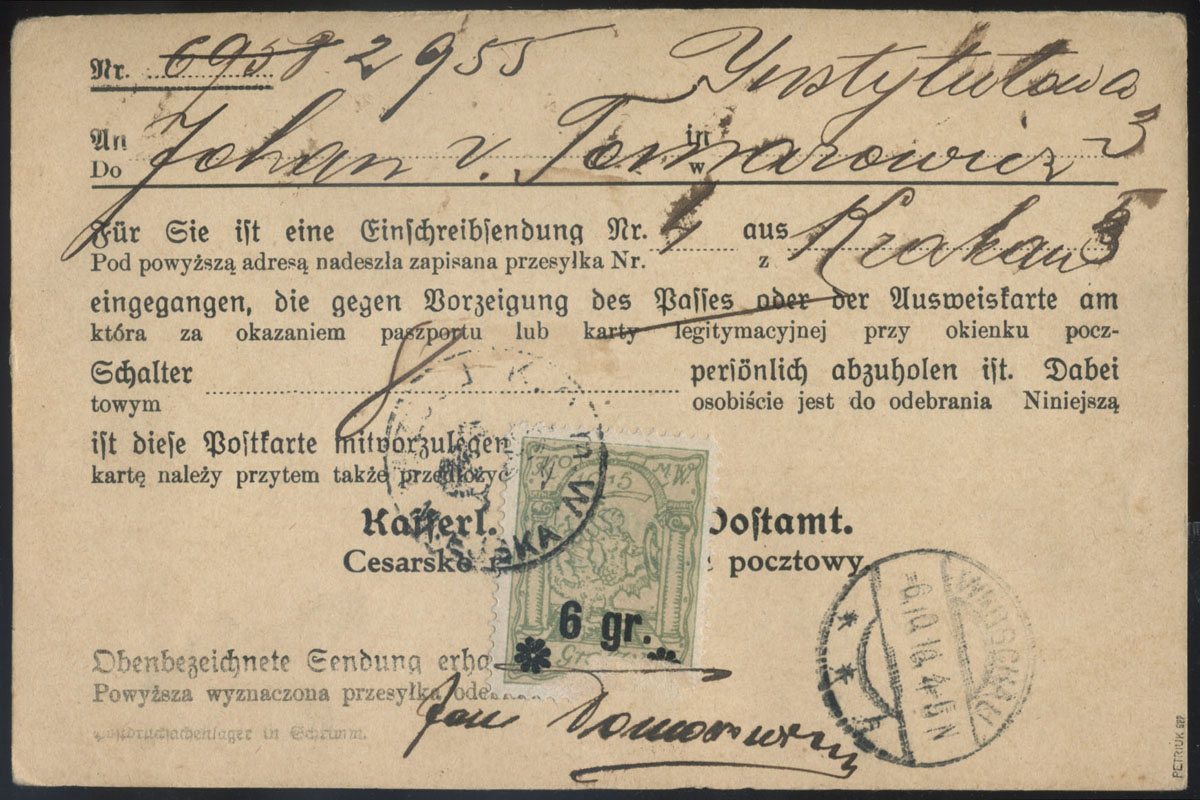 Nr. 6958 2955 Instytutowa
An Johan v. Tomarowicz in 3
Do w
Für Sie ist eine Einschreibsendung Nr. 4 aus Krakau 3
Pod powyższą adresą nadeszła zapisana przesyłka Nr. z
eingegangen, die gegen Vorzeigung des Passes oder der Ausweiskarte am
która za okazaniem paszportu lub karty legitymacyjnej przy okienku pocz-
Schalter 8 persönlich abzuholen ist. Dabei
towym osobiście jest do odebrania Niniejszą
ist diese Postkarte mitvorzulegen
kartę należy przytem także przedłożyć
Kaiserl. Postamt.
Cesarsko pocztowy
K.O. M.W.
1915
6 gr.
WARSCHAU
-6.10.16.4-5N
Obenbezeichnete Sendung erha
Powyższa wyznaczona przesyłka ode
Jan Tomarowicz
Postdrucksachenlager in Schrimm.
PETRIUK